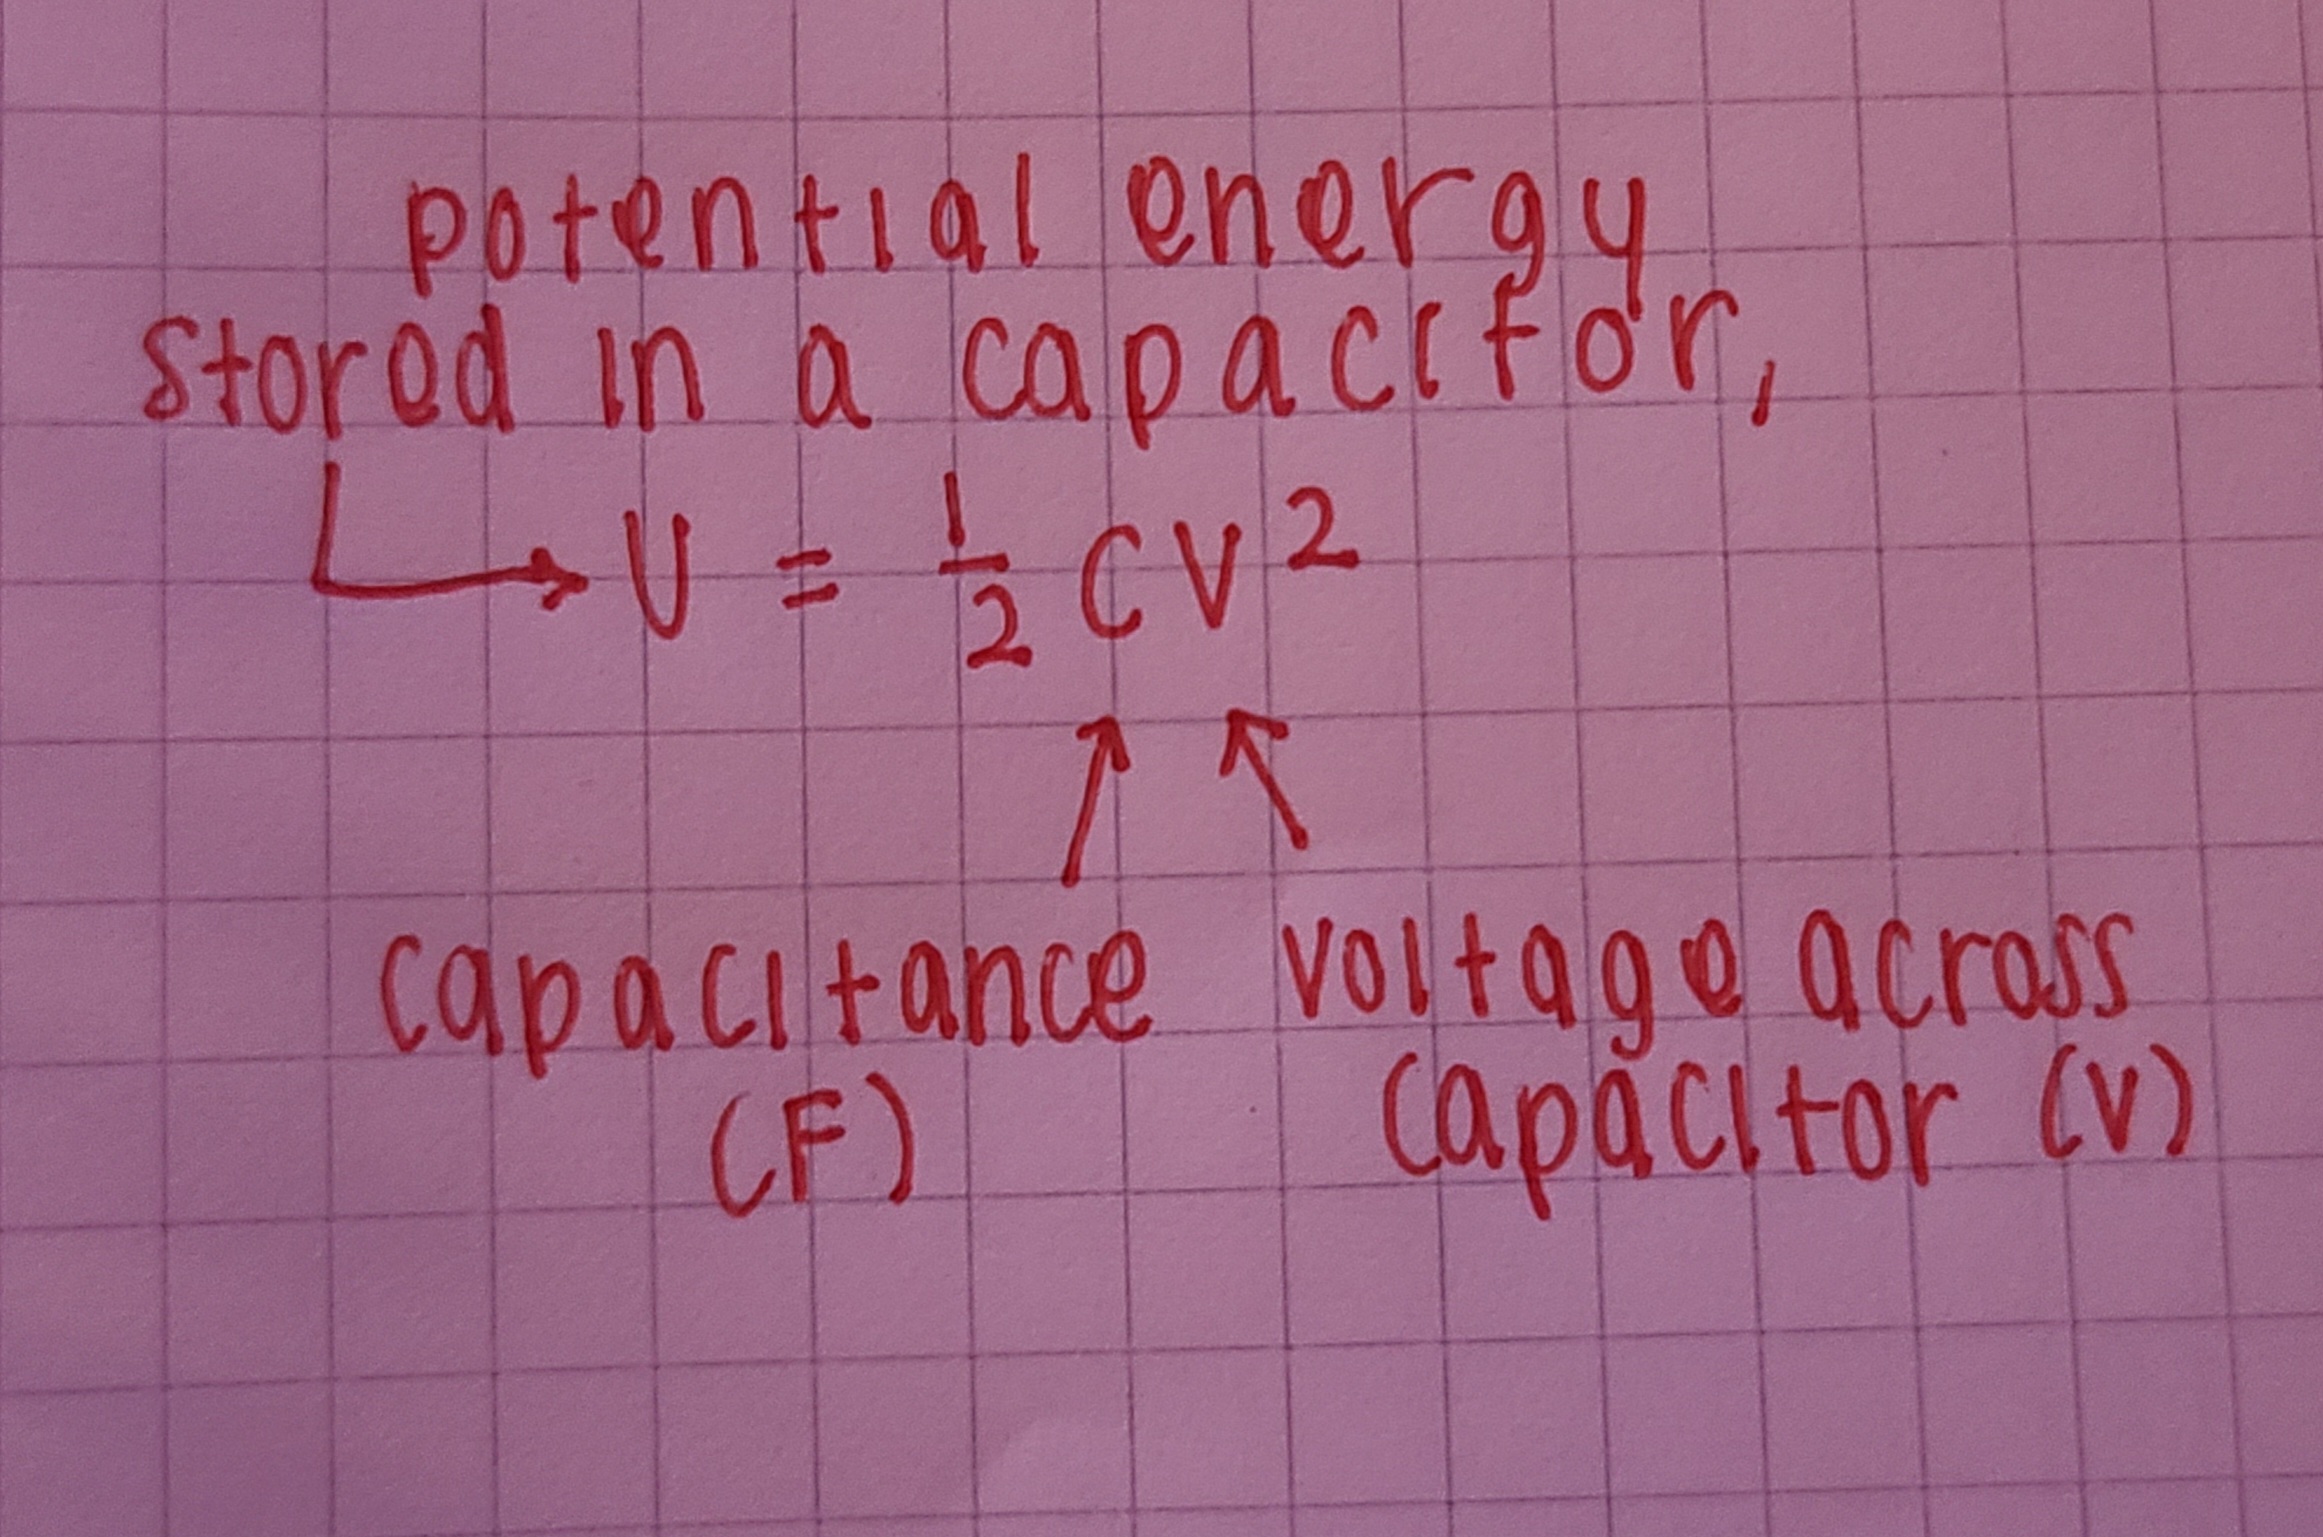 potential energy
stored in a capacitor,
U = 1/2 CV²
capacitance
(F)
voltage across
capacitor (V)